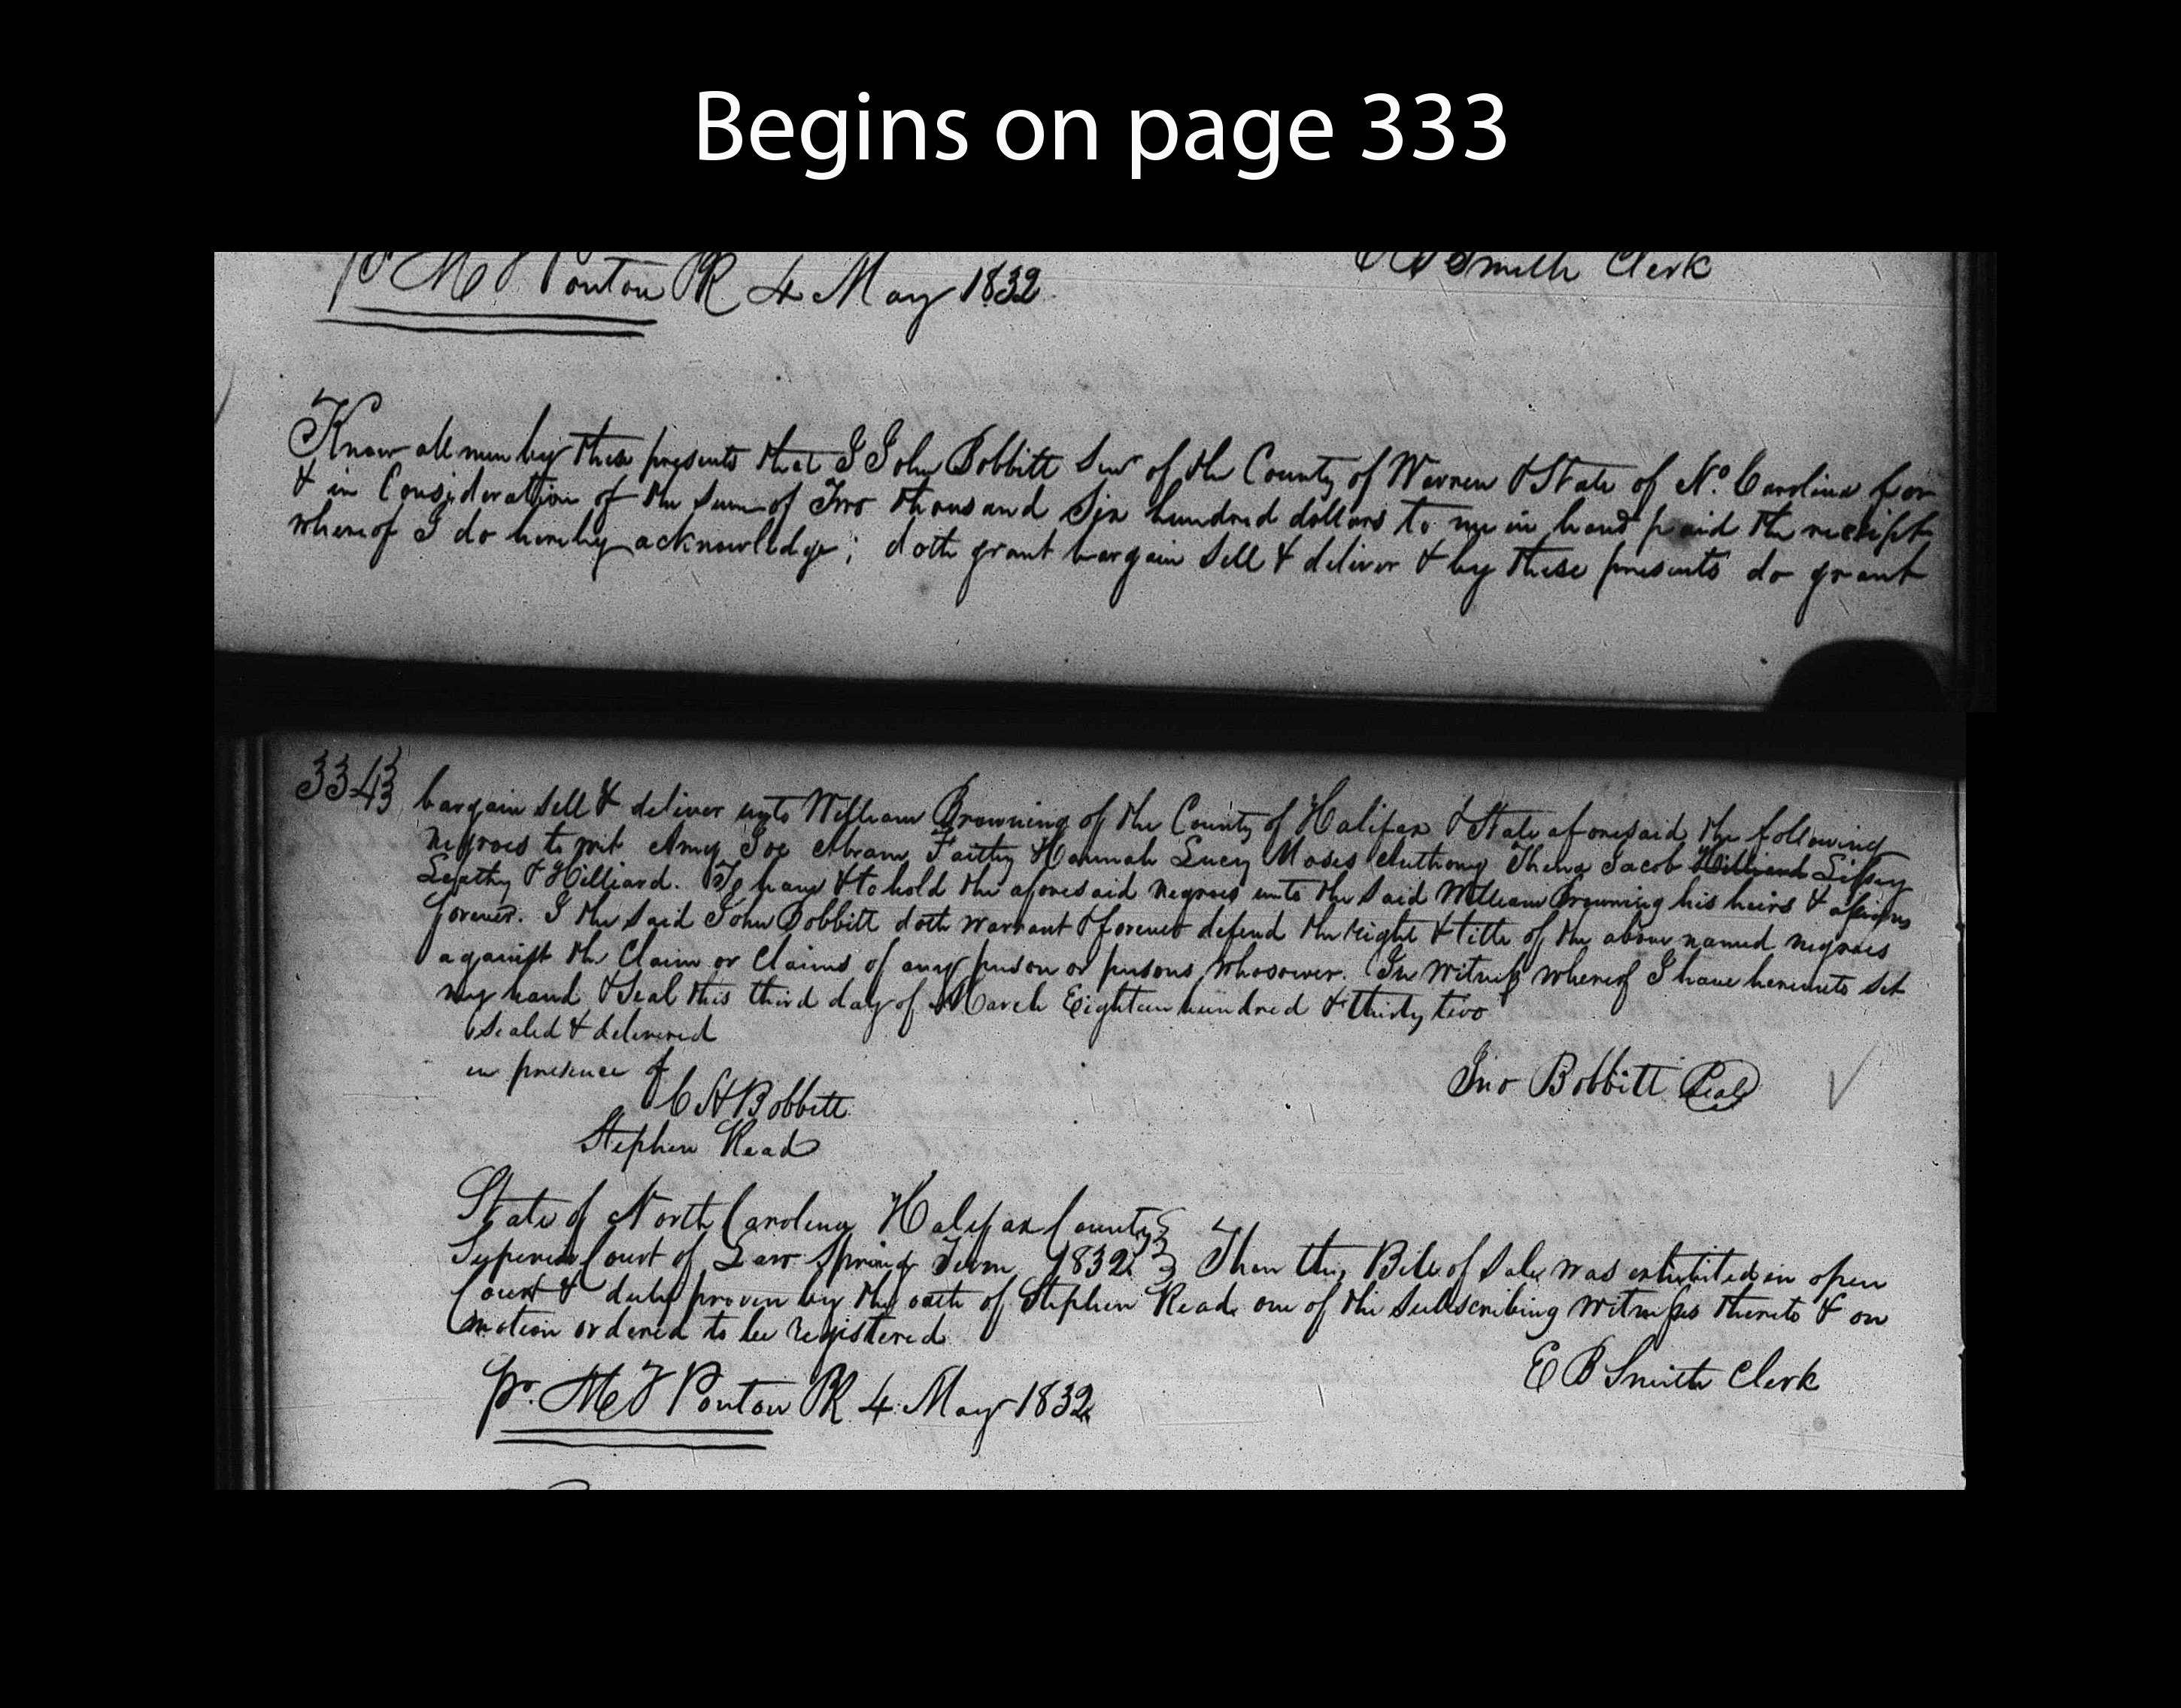 Begins on page 333
M J Ponton PR 4 May 1832
E B Smith Clerk
Know all men by these presents that I John Bobbitt Senr of the County of Warren & State of No. Carolina for
& in Consideration of the sum of Two thousand Six hundred dollars to me in hand paid the receipt
whereof I do hereby acknowledge; doth grant bargain sell & deliver & by these presents do grant
334
bargain sell & deliver unto William Browning of the County of Halifax & State aforesaid the following
negroes to wit Amy Joe Abram Faithy Hannah Lucy Moses Anthony Jacob Hilliard Lipsey
Leathy & Hilliard. To have & to hold the aforesaid negroes unto the said William Browning his heirs & assigns
forever. I the said John Bobbitt doth warrant & forever defend the right & title of the above named negroes
against the Claim or Claims of any person or persons whosoever. In witness whereof I have hereunto set
my hand & Seal this third day of March Eighteen hundred & thirty two
Sealed & delivered
in presence of
Jno Bobbitt Seal
C H Bobbitt
Stephen Read
State of North Carolina Halifax County
Superior Court of Law Spring Term 1832 } Then this Bill of Sale was exhibited in open
Court & duly proven by the oath of Stephen Read one of the Subscribing witnesses thereto & on
motion ordered to be registered
E B Smith Clerk
pr. M J Ponton PR 4 May 1832